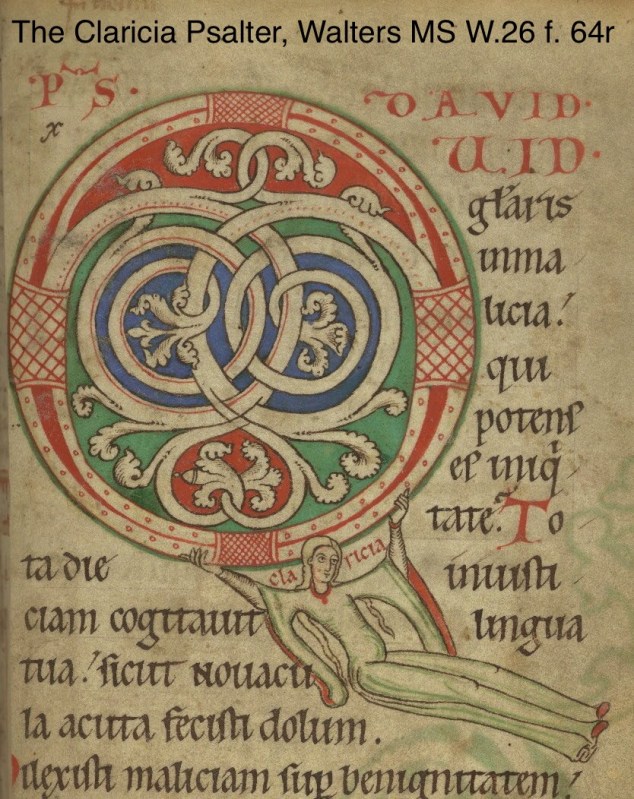 The Claricia Psalter, Walters MS W.26 f. 64r
P S · DAVID ·
x
Q UID ·
gl̄aris
inma
licia?
qui
potens
es iniq̇
tate? To
ta die iniusti
claricia
ciam cogitauit lingua
tua? sicut nouacu
la acuta fecisti dolum .
Dilexisti maliciam sup̱ benignitatem?